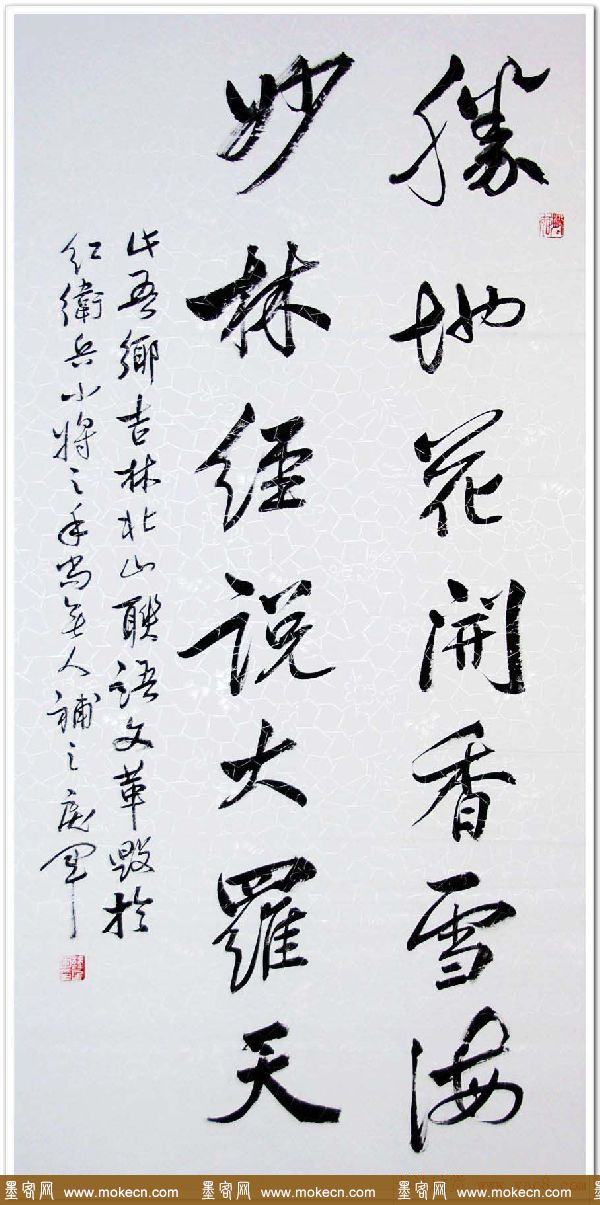 勝地花開香雪海
妙林經說大羅天
此吾鄉吉林北山聯語文革毀於
紅衛兵小將之手尚無人補之
墨客网 www.mokecn.com 墨客网 www.mokecn.com 墨客网 www.mokecn.com